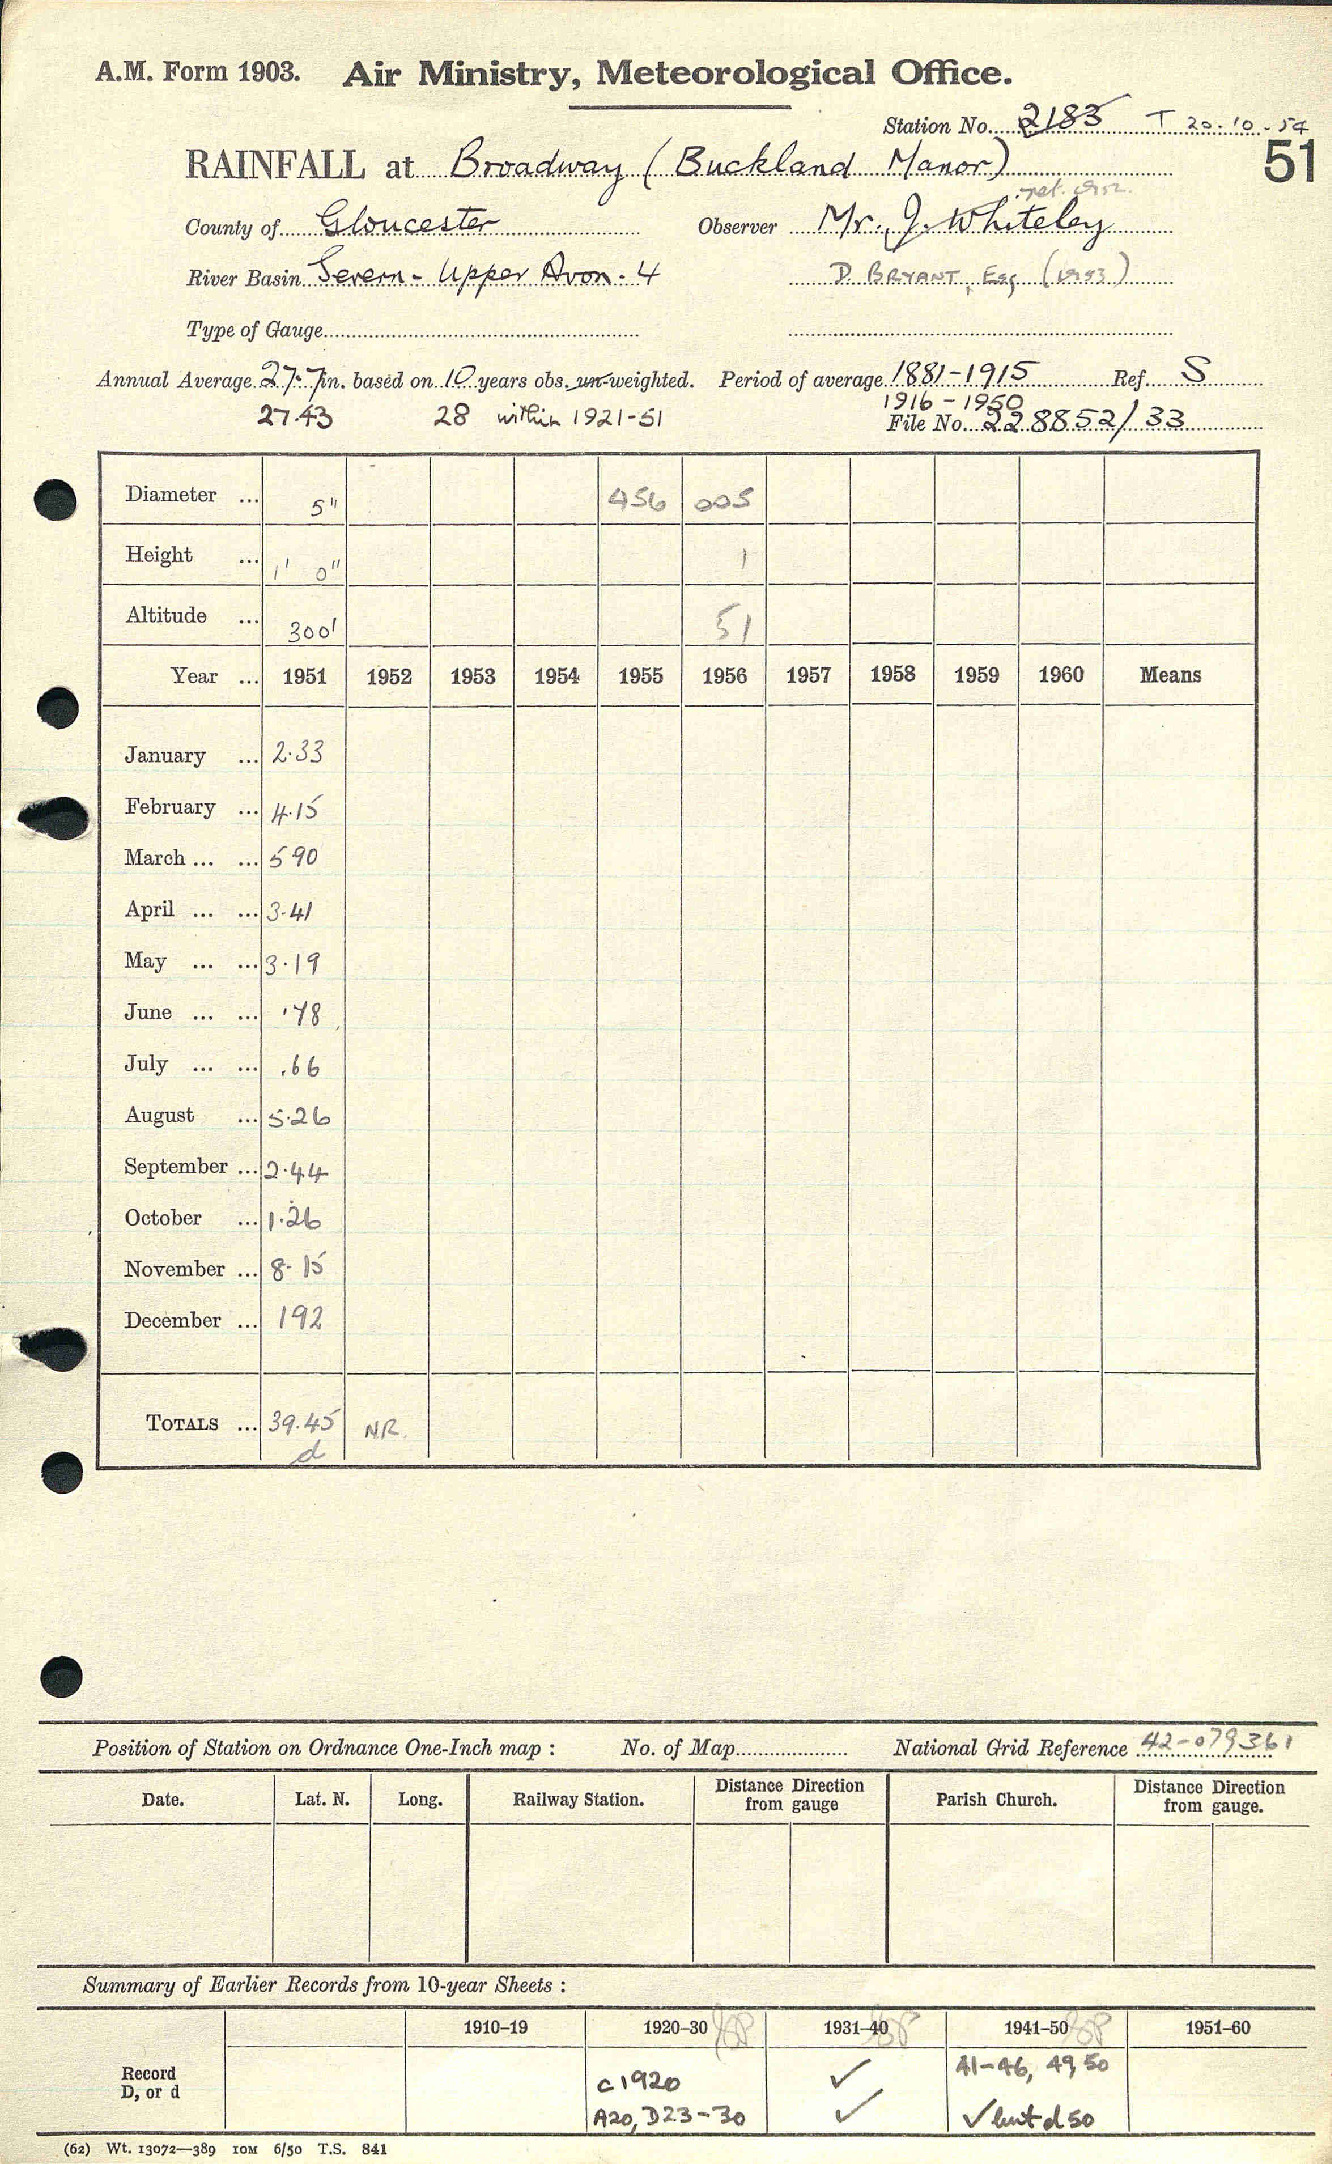 A.M. Form 1903. Air Ministry, Meteorological Office.
Station No. 2183 T 20.10.54
51
RAINFALL at Broadway (Buckland Manor)
County of Gloucester Observer Mr. J. Whiteley
River Basin Severn - Upper Avon - 4 D. BRYANT, Esq (1953)
Type of Gauge
Annual Average 27.7 in. based on 10 years obs. un-weighted. Period of average 1881-1915 Ref. S
27.43 28 within 1921-51 1916-1950
File No. 228852/33
Diameter ... 5" 456 005
Height ... 1' 0" 1
Altitude ... 300' 51
Year ... 1951 1952 1953 1954 1955 1956 1957 1958 1959 1960 Means
January ... 2.33
February ... 4.15
March ... ... 5 90
April ... ... 3.41
May ... ... 3.19
June ... ... .78
July ... ... .66
August ... 5.26
September ... 2.44
October ... 1.26
November ... 8.15
December ... 192
TOTALS ... 39.45 NR
d
Position of Station on Ordnance One-Inch map : No. of Map National Grid Reference 42-079361
Date. Lat. N. Long. Railway Station. Distance Direction from gauge Parish Church. Distance Direction from gauge.
Summary of Earlier Records from 10-year Sheets :
1910-19 1920-30 1931-40 1941-50 1951-60
Record c1920 ✓ 41-46, 49, 50
D, or d A20, D23-30 ✓ ✓ but d 50
(62) Wt. 13072—389 10M 6/50 T.S. 841